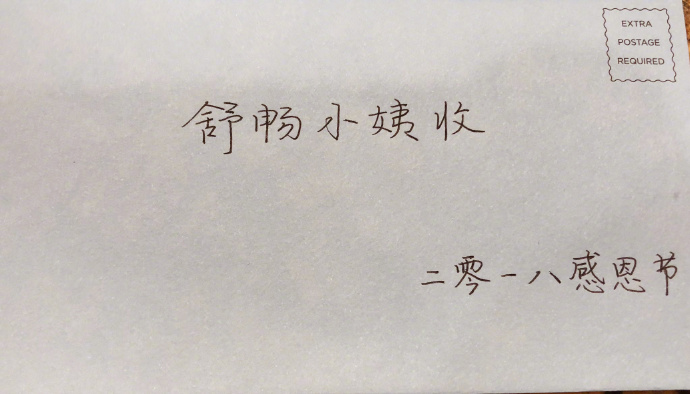 EXTRA
POSTAGE
REQUIRED
舒畅小姨收
二零一八感恩节